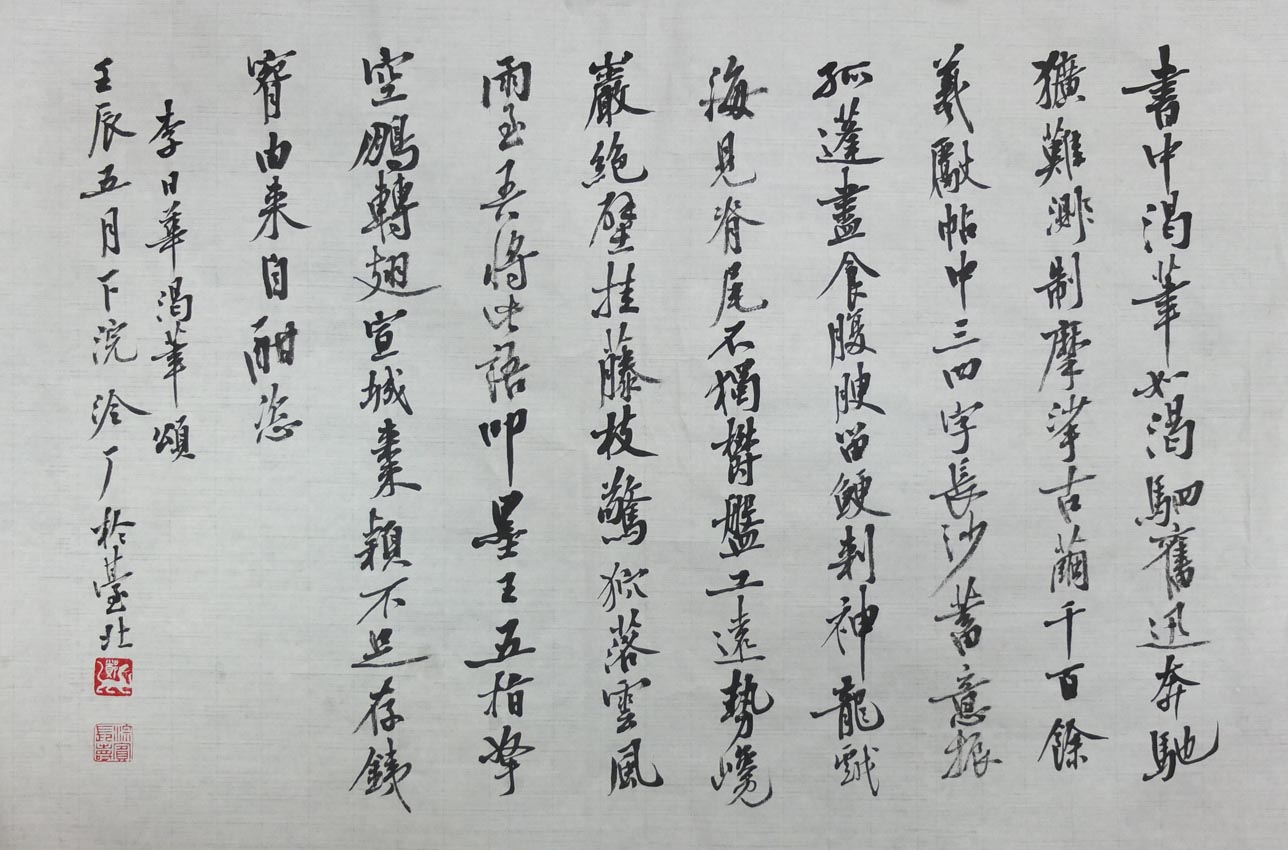 書中渴筆如渴駟奮迅奔馳
獷難測制摩挲古繭千百餘
羲獻帖中三四字長沙蓄意振
孤蓬盡食腹腴留鯁刺神龍戲
海見脊尾不獨鬱盤工遠勢巉
巖絕壁挂藤枝驚猨落雲風
雨至吾將此語叩墨王五指峯
空鵬轉翅宣城棗穎不足存鐵
腕由來自酣恣
李日華渴筆頌
壬辰五月下浣泠厂於臺北